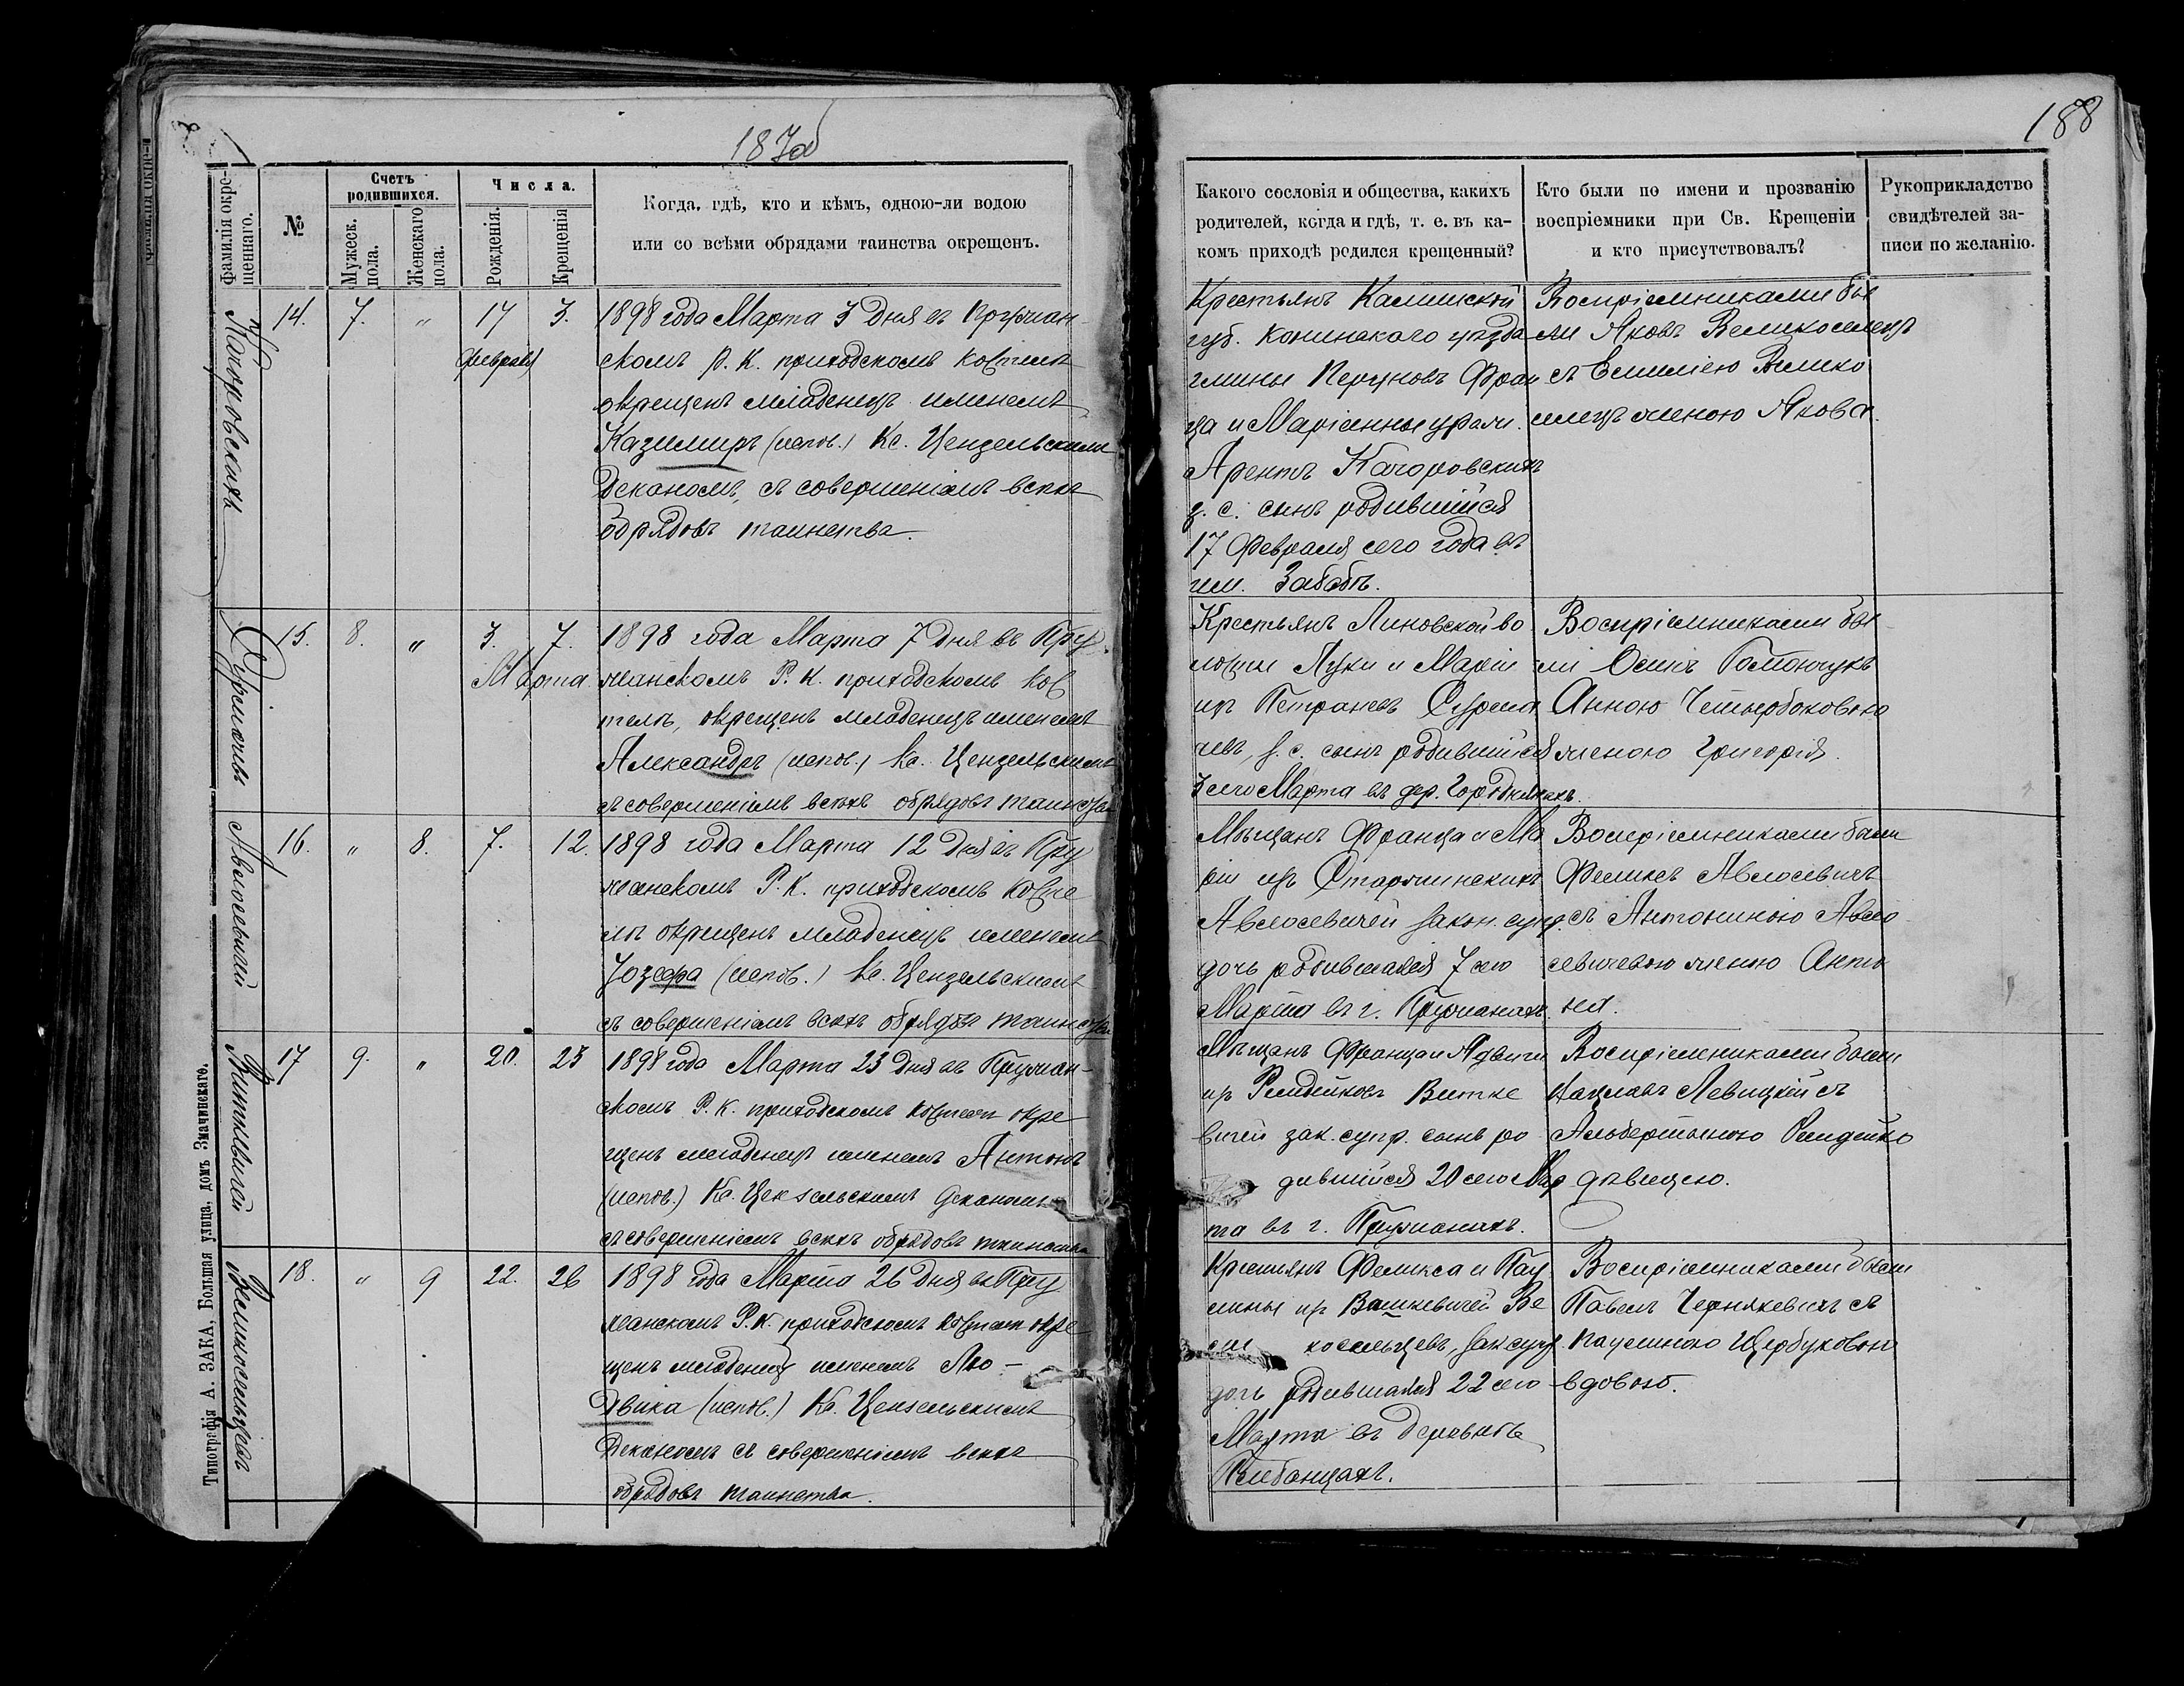 187об
188
Фамилія окре-
щеннаго.
№
Счетъ
родившихся.
Мужеск.
пола.
Женскаго
пола.
Числа.
Рожденія.
Крещенія
Когда, гдѣ, кто и кѣмъ, одною-ли водою
или со всѣми обрядами таинства окрещенъ.
Какого сословія и общества, какихъ
родителей, когда и гдѣ, т. е. въ ка-
комъ приходѣ родился крещенный?
Кто были по имени и прозванію
воспріемники при Св. Крещеніи
и кто присутствовалъ?
Рукоприкладство
свидѣтелей за-
писи по желанію.
Качоровскихъ
14.
7.
"
17
Февраля
3.
1898 года Марта 3 дня въ Пружан-
скомъ Р. К. приходскомъ костелѣ
окрещенъ младенецъ именемъ
Казимиръ (испов.) Кс. Цензельскимъ
Деканомъ, съ совершеніемъ всѣхъ
обрядовъ таинства.
Крестьянъ Калишской
губ. Конинскаго уѣзда
гмины Франц
ца и Маріанны урож.
Арентъ Качоровскихъ
з. с. сынъ родившійся
17 Февраля сего года въ
им. Забабъ.
Воспріемниками бы
ли Яковъ Великоселецъ
съ Емиліею Велико
селецъ женою Якова.
15.
8.
"
3.
Марта.
7.
1898 года Марта 7 дня въ Пру
жанскомъ Р. К. приходскомъ кос
телѣ, окрещенъ младенецъ именемъ
Александръ (испов.) Кс. Цензельскимъ
съ совершеніемъ всѣхъ обрядовъ таинства
Крестьянъ Линовской во
лости Луки и Маріи
ур
чевъ, з. с. сынъ родившійся
3 сего Марта въ дер. Городнянахъ.
Воспріемниками бы
ли Осипъ Гомончукъ
Анною
женою Григорія.
Авлосевичей
16.
"
8.
7.
12.
1898 года Марта 12 дня въ Пру
жанскомъ Р. К. приходскомъ косте
лѣ окрещенъ младенецъ именемъ
Юзефа (испов.) Кс. Цензельскимъ
съ совершеніемъ всѣхъ обрядовъ таинства
Мѣщанъ Франца и Ма
ріи ур. Старжинскихъ
Авлосевичей закон. супр.
дочь родившаяся 7 сего
Марта въ г. Пружанахъ.
Воспріемниками были
Феликсъ Авлосевичъ
съ Антониною Авло
севичевою женою Анто
на.
Виткевичей
17
9.
"
20.
23
1898 года Марта 23 дня въ Пружан-
скомъ Р. К. приходскомъ костелѣ окре
щенъ младенецъ именемъ Антонъ
(испов.) Кс. Цензельскимъ Деканомъ
съ совершеніемъ всѣхъ обрядовъ таинства
Мѣщанъ Франца и Ядвиги
ур Ремдейковъ Витке
вичей зак. супр. сынъ ро
дившійся 20 сего Мар
та въ г. Пружанахъ.
Воспріемниками были
Вацлавъ Левицкій съ
Альбертиною Ремдейко
дѣвицею.
Великосельцевъ
18.
"
9
22.
26
1898 года Марта 26 дня въ Пру
жанскомъ Р. К. приходскомъ костелѣ окре
щенъ младенецъ именемъ Лю-
двика (испов.) Кс. Цензельскимъ
Деканомъ съ совершеніемъ всѣхъ
обрядовъ таинства.
Крестьянъ Феликса и Пау
лины ур Вашкевичей Ве
ли косельцевъ, зак супр.
дочь родившаяся 22 сего
Марта въ деревнѣ
Плебанцахъ.
Воспріемниками были
Павелъ Чернякевичъ съ
Паулиною Щербуковою
вдовою.
Типографія А. ЗАКА, Большая улица, домъ Значинскаго.